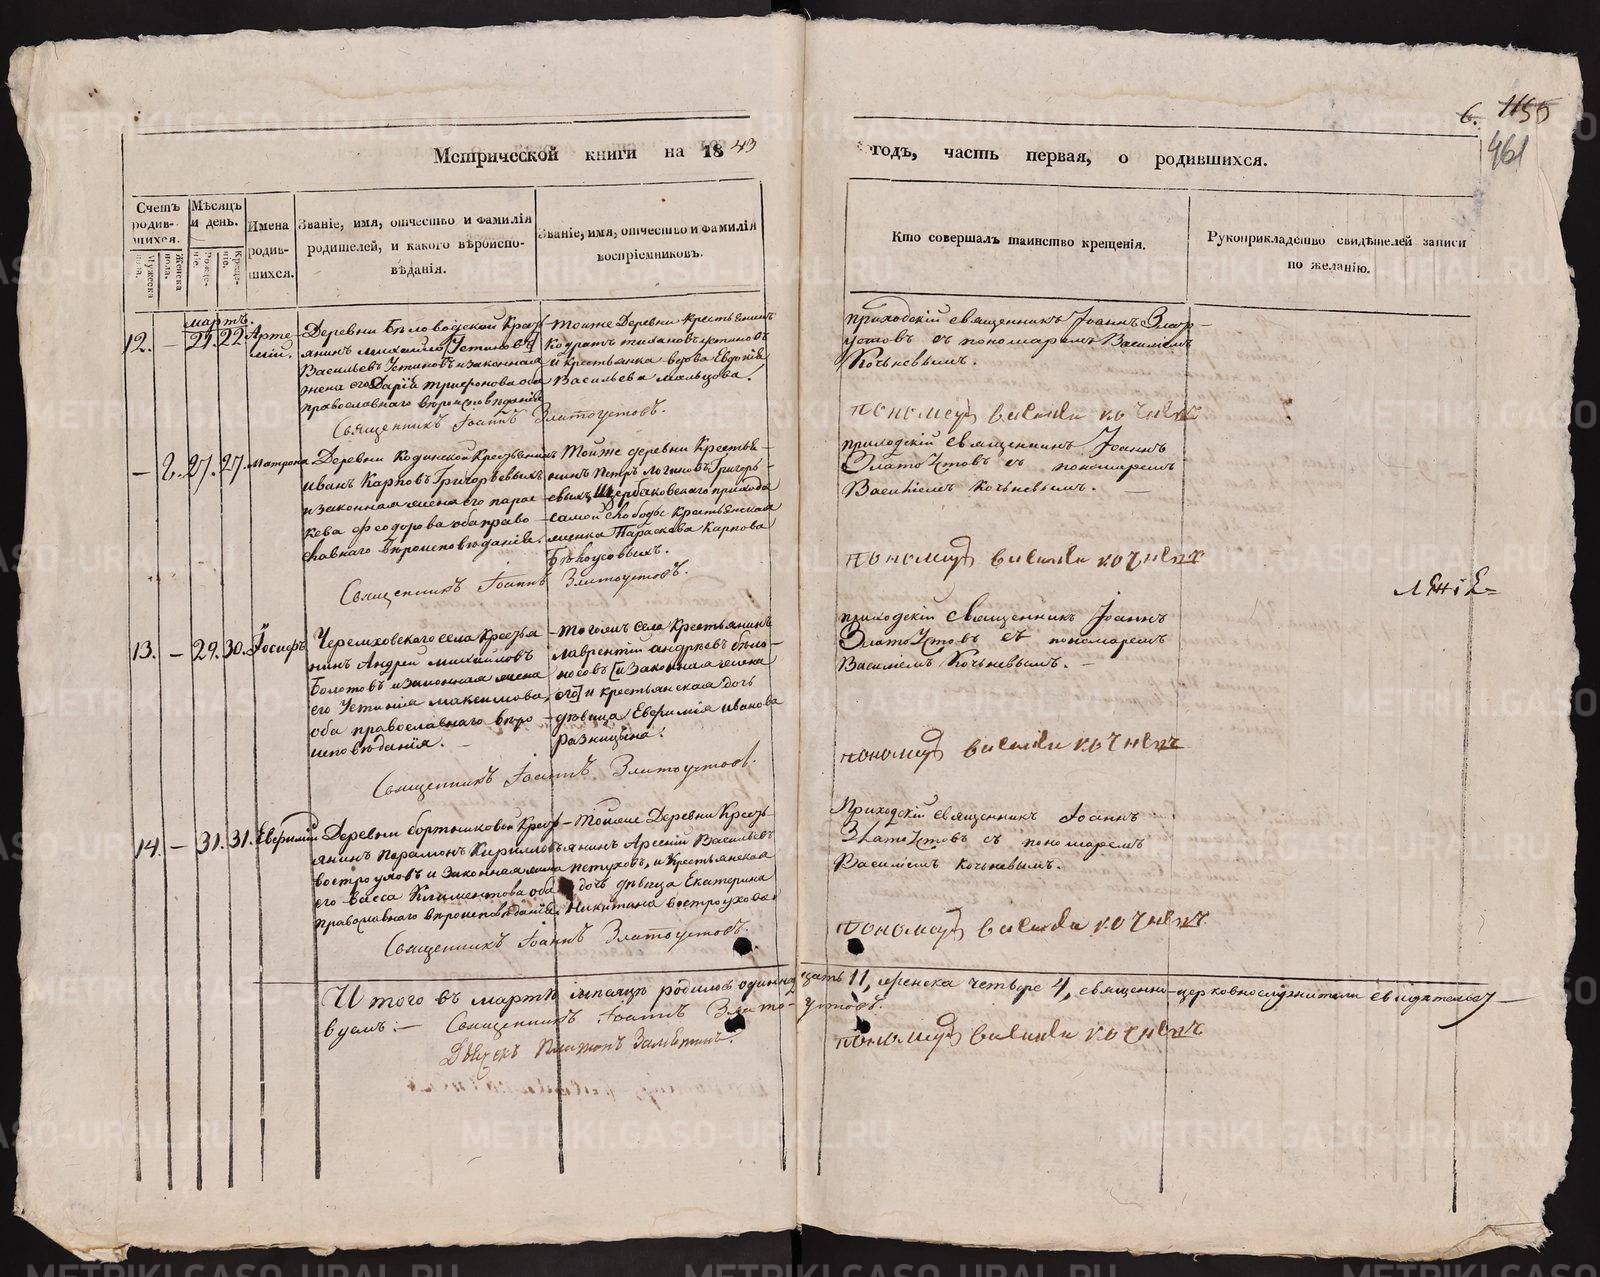 6. 1155
461
Метрической книги на 1843
годъ, часть первая, о родившихся.
Счетъ родив- шихся.
Мужеска пола.
Женска пола.
Мѣсяцъ и день.
Рожде- нія.
Креще- нія.
Имена родив- шихся.
Званіе, имя, отчество и фамилія
родителей, и какого вѣроиспо-
вѣданія.
Званіе, имя, отчество и фамилія
воспріемниковъ.
Кто совершалъ таинство крещенія.
Рукоприкладство свидѣтелей записи
по желанію.
мартъ.
12. — 21. 22. Арте-
мій.
Деревни Бѣловодской Кресть-
янинъ Михайло [Устиновъ]
Васильевъ Устиновъ и законная
жена его Дарія Трифонова оба
православнаго вѣроисповѣданія
тойже Деревни крестьянинъ
Кодратъ тихановъ устиновъ
и крестьянка вдова Евдокія
Васильева мальцова.
Священникъ Іоаннъ Златоустовъ.
приходскій священникъ Іоаннъ Злат-
устовъ съ пономаремъ Василіемъ
Кочневымъ.
пономарь василеи кочневъ
— 2. 27. 27. Матрона
Деревни Кодинской Крестьянинъ
иванъ Карповъ Григорьевыхъ
и законная жена его парас-
кева феодорова оба право-
славнаго вѣроисповѣданія.
Тойже деревни Крестья-
нинъ Петръ логиновъ Григорь-
евыхъ, Щербаковскаго прихода
самой слободы Крестьянская
женка Параскева Карпова
Бѣлоусовыхъ.
Священникъ Іоаннъ Златоустовъ.
приходскій священникъ Іоаннъ
Златоустовъ съ пономаремъ
Василіемъ Кочневымъ. —
пономарь василеи кочневъ
13. — 29. 30. Іосифъ
Черемховскаго села Крестья-
нинъ Андрей михайловъ
Болотовъ и законная жена
его Устинія максимова,
оба православнаго вѣро-
исповѣданія. —
тогожъ села Крестьянинъ
лаврентій андреевъ бѣло-
носовъ [и законная жена
его] и крестьянская дочь
дѣвица Евфимія иванова
Разницына.
Священникъ Іоаннъ Златоустовъ.
приходскій священникъ Іоаннъ
Златоустовъ съ пономаремъ
Василіемъ Кочневымъ. —
пономарь василеи кочневъ
14. — 31. 31. Евфимій
Деревни бортниковой Кресть-
янинъ парамонъ Кириловъ
востроуховъ и законная жена
его васса Климентова оба
православнаго вѣроисповѣданія.
Тойже Деревни Кресть-
янинъ Арсеній Васильевъ
петуховъ, и Крестьянская
дочь дѣвица Екатерина
Никитина востроухова.
Священникъ Іоаннъ Златоустовъ.
Приходскій священникъ Іоаннъ
Златоустовъ съ пономаремъ
Василіемъ кочневымъ.
пономарь василеи кочневъ
Итого въ мартѣ мѣсяцѣ родилось одинадцать 11, женска четверо 4, священно-церковнослужители свидѣтельст-
вуемъ: — Священникъ Іоаннъ Златоустовъ.
Дьячекъ Платонъ
пономарь василеи кочневъ
METRIKI.GASO-URAL.RU